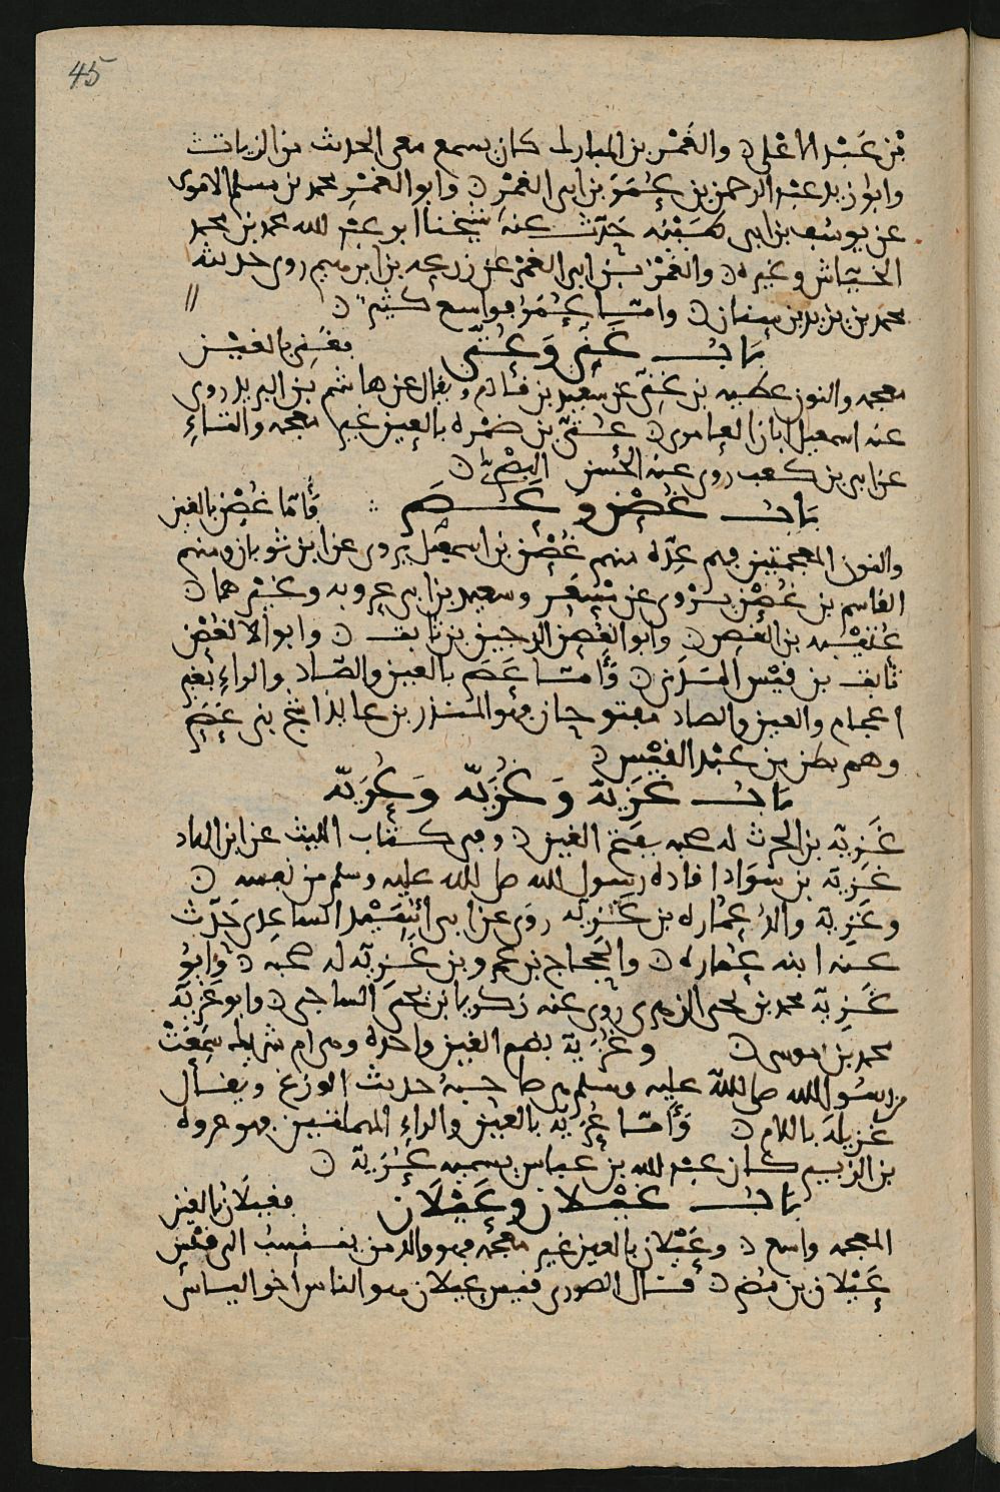 45
بن عَبْد الاعْلى ۞ والغَمْر بن المبارك كان يسمع معى الحديث من الزيات
وابو زيد عبد الرحمن بن عُمَر بن ابى الغمْر ۞ وابو الغمْرِ محمد بن مسلم الاموى
عن يوسف بن ابى حَدّث عنه شيخنا ابو عبد الله محمد بن محمد
الخيّاش وغيره ۞ والغَمْر بن ابى الغمْر عن بن ابرهيم روى حديثه
محمد بن يزيد بن سنان ۞ وامّا عُمَر فواسع كثير ۞
بَابُ غَنِىّ وَعُتَىّ فغَنِى بالغيْن
معجمه والنون عطيه بن غنىّ عن سعيد بن ويقال عن هاشم بن البريد روى
عنه اسمعيل بن ابان العامرى ۞ عُتَىّ بن ضمْره بالعين غير معجمه والتاءِ
عن ابى بن كعب روى عنه الحسن البصْرىّ ۞
بَابُ غُصْن وعَصَر فَأمّا غصْن بالغين
والنون المعجمتين فهم عِدّه منهم غُصْن بن اسمعيل يروى عن ابن ثوبان ومنهم
القاسم بن غُصْن يرْوى عن مِسْعَر وسعيد بن ابى عروبه وغيْرهما ۞
بن الغصن ۞ وابو الغُصْن الدجين بن ثابت ۞ وابو الغُصْن
ثابت بن قيْس المدَنى ۞ فَأمّا عَصَر بالعين والصّاد والراءِ بغير
اعجام والعين والصاد مفتوحان فهو المنذر بن عائذ اشج بنى عَصَر
وهم بطن من عبْد القيْس ۞
بَابُ غَزِيّه وَغُزَيّه وَعُرَيّه
غَزِيّه بن الحرث له صحبه بفتح الغين ۞ وفى كتاب الليث عن ابن الهاد
غَزِيّه بن سَوَاد اقاده رسول الله صلى الله عليه وسلم من نفسه ۞
وغَزِيّه والد عُمَاره بن غَزِيّه روَى عن ابى السَاعِدِى حَدّث
عنه ابنه عُماره ۞ والحجّاج بن عمرو بن غَزِيّه له صحبه ۞ وَابوُ
غَزِيّه محمد بن يحيى الزهرى روى عنه زكريا بن يحيى الساجى ۞ وابو غَزِيّه
محمد بن موسى ۞ وغُزَيّه بضم الغين واحده وهى ام شريك سَمِعَتْ
من رسُول الله صلى الله عليه وسلم حديث الوزغ ويقَال
غزيله باللام ۞ فَأمّا عُرَيّه بالعين والراءِ المهملتين فهو عروه
بن الزبير كان عبد الله بن عباس يسميه عُرَيّه ۞
بَابُ غيْلان وعَيْلَان فغيلَان بالغين
المعجمه واسع ۞ وعَيْلان بالعين غير معجمه فهو والد من ينتسبُ الى قيْس
عَيْلان بن مضر ۞ قال الصورى قيس عيلان هو الناس اخو الياس